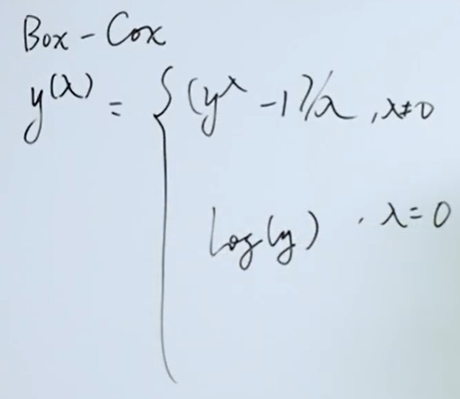 Box - Cox
y^(λ) = { (y^λ - 1)/λ , λ≠0
log(y) , λ = 0